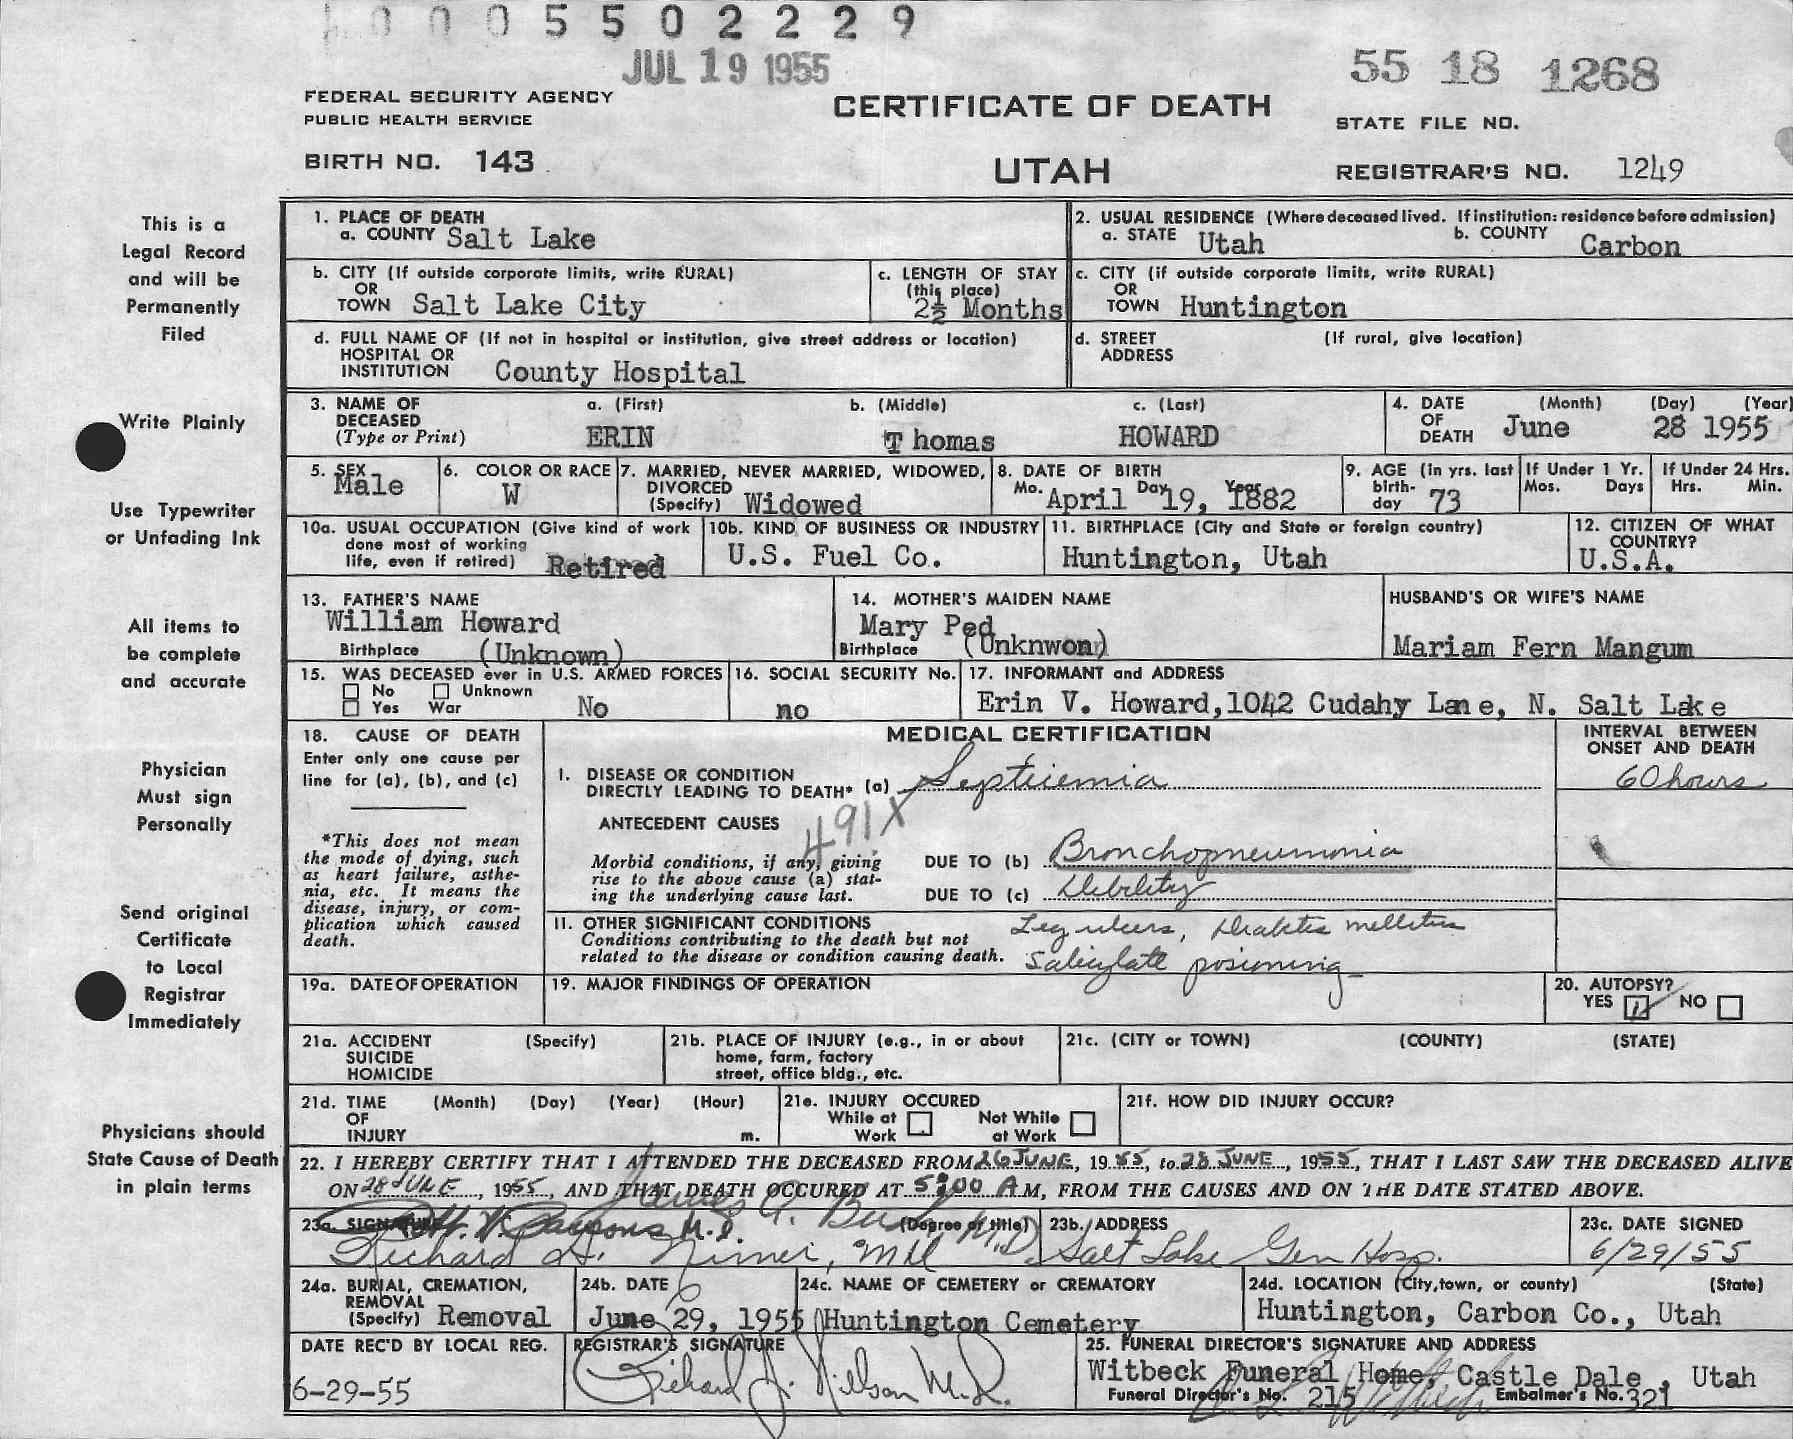 0005502229
JUL 19 1955
55 18 1268
FEDERAL SECURITY AGENCY
PUBLIC HEALTH SERVICE
CERTIFICATE OF DEATH
STATE FILE NO.
BIRTH NO. 143
UTAH
REGISTRAR'S NO. 1249
This is a
Legal Record
and will be
Permanently
Filed
Write Plainly
Use Typewriter
or Unfading Ink
All items to
be complete
and accurate
Physician
Must sign
Personally
Send original
Certificate
to Local
Registrar
Immediately
Physicians should
State Cause of Death
in plain terms
1. PLACE OF DEATH
a. COUNTY Salt Lake
2. USUAL RESIDENCE (Where deceased lived. If institution: residence before admission)
a. STATE Utah b. COUNTY Carbon
b. CITY (If outside corporate limits, write RURAL)
OR
TOWN Salt Lake City
c. LENGTH OF STAY
(this place)
2½ Months
c. CITY (if outside corporate limits, write RURAL)
OR
TOWN Huntington
d. FULL NAME OF (If not in hospital or institution, give street address or location)
HOSPITAL OR
INSTITUTION County Hospital
d. STREET (If rural, give location)
ADDRESS
3. NAME OF a. (First) b. (Middle) c. (Last)
DECEASED
(Type or Print) ERIN Thomas HOWARD
4. DATE (Month) (Day) (Year)
OF
DEATH June 28 1955
5. SEX
Male
6. COLOR OR RACE
W
7. MARRIED, NEVER MARRIED, WIDOWED,
DIVORCED
(Specify) Widowed
8. DATE OF BIRTH
Mo. April Day 19, Year 1882
9. AGE (in yrs. last
birth-
day 73
If Under 1 Yr.
Mos. Days
If Under 24 Hrs.
Hrs. Min.
10a. USUAL OCCUPATION (Give kind of work
done most of working
life, even if retired) Retired
10b. KIND OF BUSINESS OR INDUSTRY
U.S. Fuel Co.
11. BIRTHPLACE (City and State or foreign country)
Huntington, Utah
12. CITIZEN OF WHAT
COUNTRY?
U.S.A.
13. FATHER'S NAME
William Howard
Birthplace (Unknown)
14. MOTHER'S MAIDEN NAME
Mary Ped
Birthplace (Unknwon)
HUSBAND'S OR WIFE'S NAME
Mariam Fern Mangum
15. WAS DECEASED ever in U.S. ARMED FORCES
No Unknown
Yes War No
16. SOCIAL SECURITY No.
no
17. INFORMANT and ADDRESS
Erin V. Howard, 1042 Cudahy Lane, N. Salt Lake
18. CAUSE OF DEATH
Enter only one cause per
line for (a), (b), and (c)
*This does not mean
the mode of dying, such
as heart failure, asthe-
nia, etc. It means the
disease, injury, or com-
plication which caused
death.
MEDICAL CERTIFICATION
INTERVAL BETWEEN
ONSET AND DEATH
I. DISEASE OR CONDITION
DIRECTLY LEADING TO DEATH* (a) Septicemia
60 hours
ANTECEDENT CAUSES
491X
Morbid conditions, if any, giving
rise to the above cause (a) stat-
ing the underlying cause last.
DUE TO (b) Bronchopneumonia
DUE TO (c) Debility
II. OTHER SIGNIFICANT CONDITIONS
Conditions contributing to the death but not
related to the disease or condition causing death.
Leg ulcers, Diabetes mellitus
Salicylate posioning
19a. DATE OF OPERATION
19. MAJOR FINDINGS OF OPERATION
20. AUTOPSY?
YES NO
21a. ACCIDENT (Specify)
SUICIDE
HOMICIDE
21b. PLACE OF INJURY (e.g., in or about
home, farm, factory
street, office bldg., etc.
21c. (CITY or TOWN) (COUNTY) (STATE)
21d. TIME (Month) (Day) (Year) (Hour)
OF
INJURY m.
21e. INJURY OCCURED
While at Work Not While at Work
21f. HOW DID INJURY OCCUR?
22. I HEREBY CERTIFY THAT I ATTENDED THE DECEASED FROM 26 JUNE, 1955, to 28 JUNE, 1955, THAT I LAST SAW THE DECEASED ALIVE
ON 28 JUNE, 1955, AND THAT DEATH OCCURED AT 5:00 A M, FROM THE CAUSES AND ON THE DATE STATED ABOVE.
23a. SIGNATURE (Degree or title)
M.D.
Richard
23b. ADDRESS
Salt Lake Gen Hosp.
23c. DATE SIGNED
6/29/55
24a. BURIAL, CREMATION,
REMOVAL
(Specify) Removal
24b. DATE
June 29, 1955
24c. NAME OF CEMETERY or CREMATORY
Huntington Cemetery
24d. LOCATION (City, town, or county) (State)
Huntington, Carbon Co., Utah
DATE REC'D BY LOCAL REG.
6-29-55
REGISTRAR'S SIGNATURE
Richard J. Nillson M.D.
25. FUNERAL DIRECTOR'S SIGNATURE AND ADDRESS
Witbeck Funeral Home, Castle Dale, Utah
Funeral Director's No. 215 Embalmer's No. 321